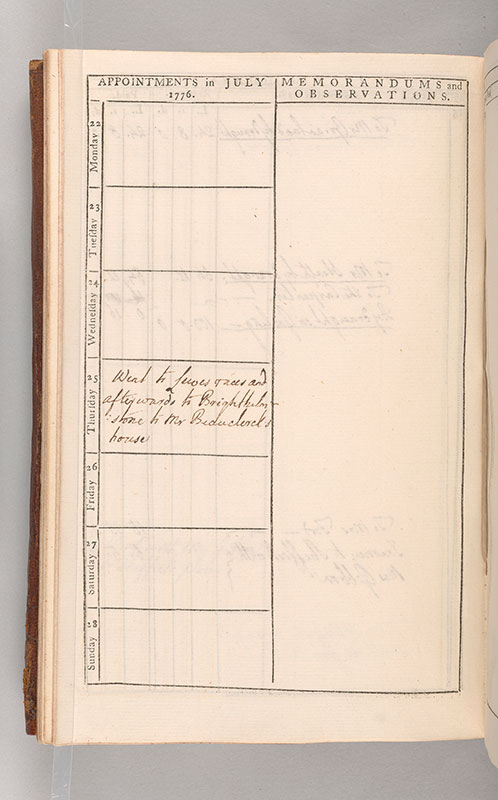 APPOINTMENTS in JULY
1776.
MEMORANDUMS and
OBSERVATIONS.
Monday 22
Tueſday 23
Wedneſday 24
Thurſday 25
Went to Lewes races and
afterwards to Brighthelm-
stone to Mr Beauclerck's
house
Friday 26
Saturday 27
Sunday 28